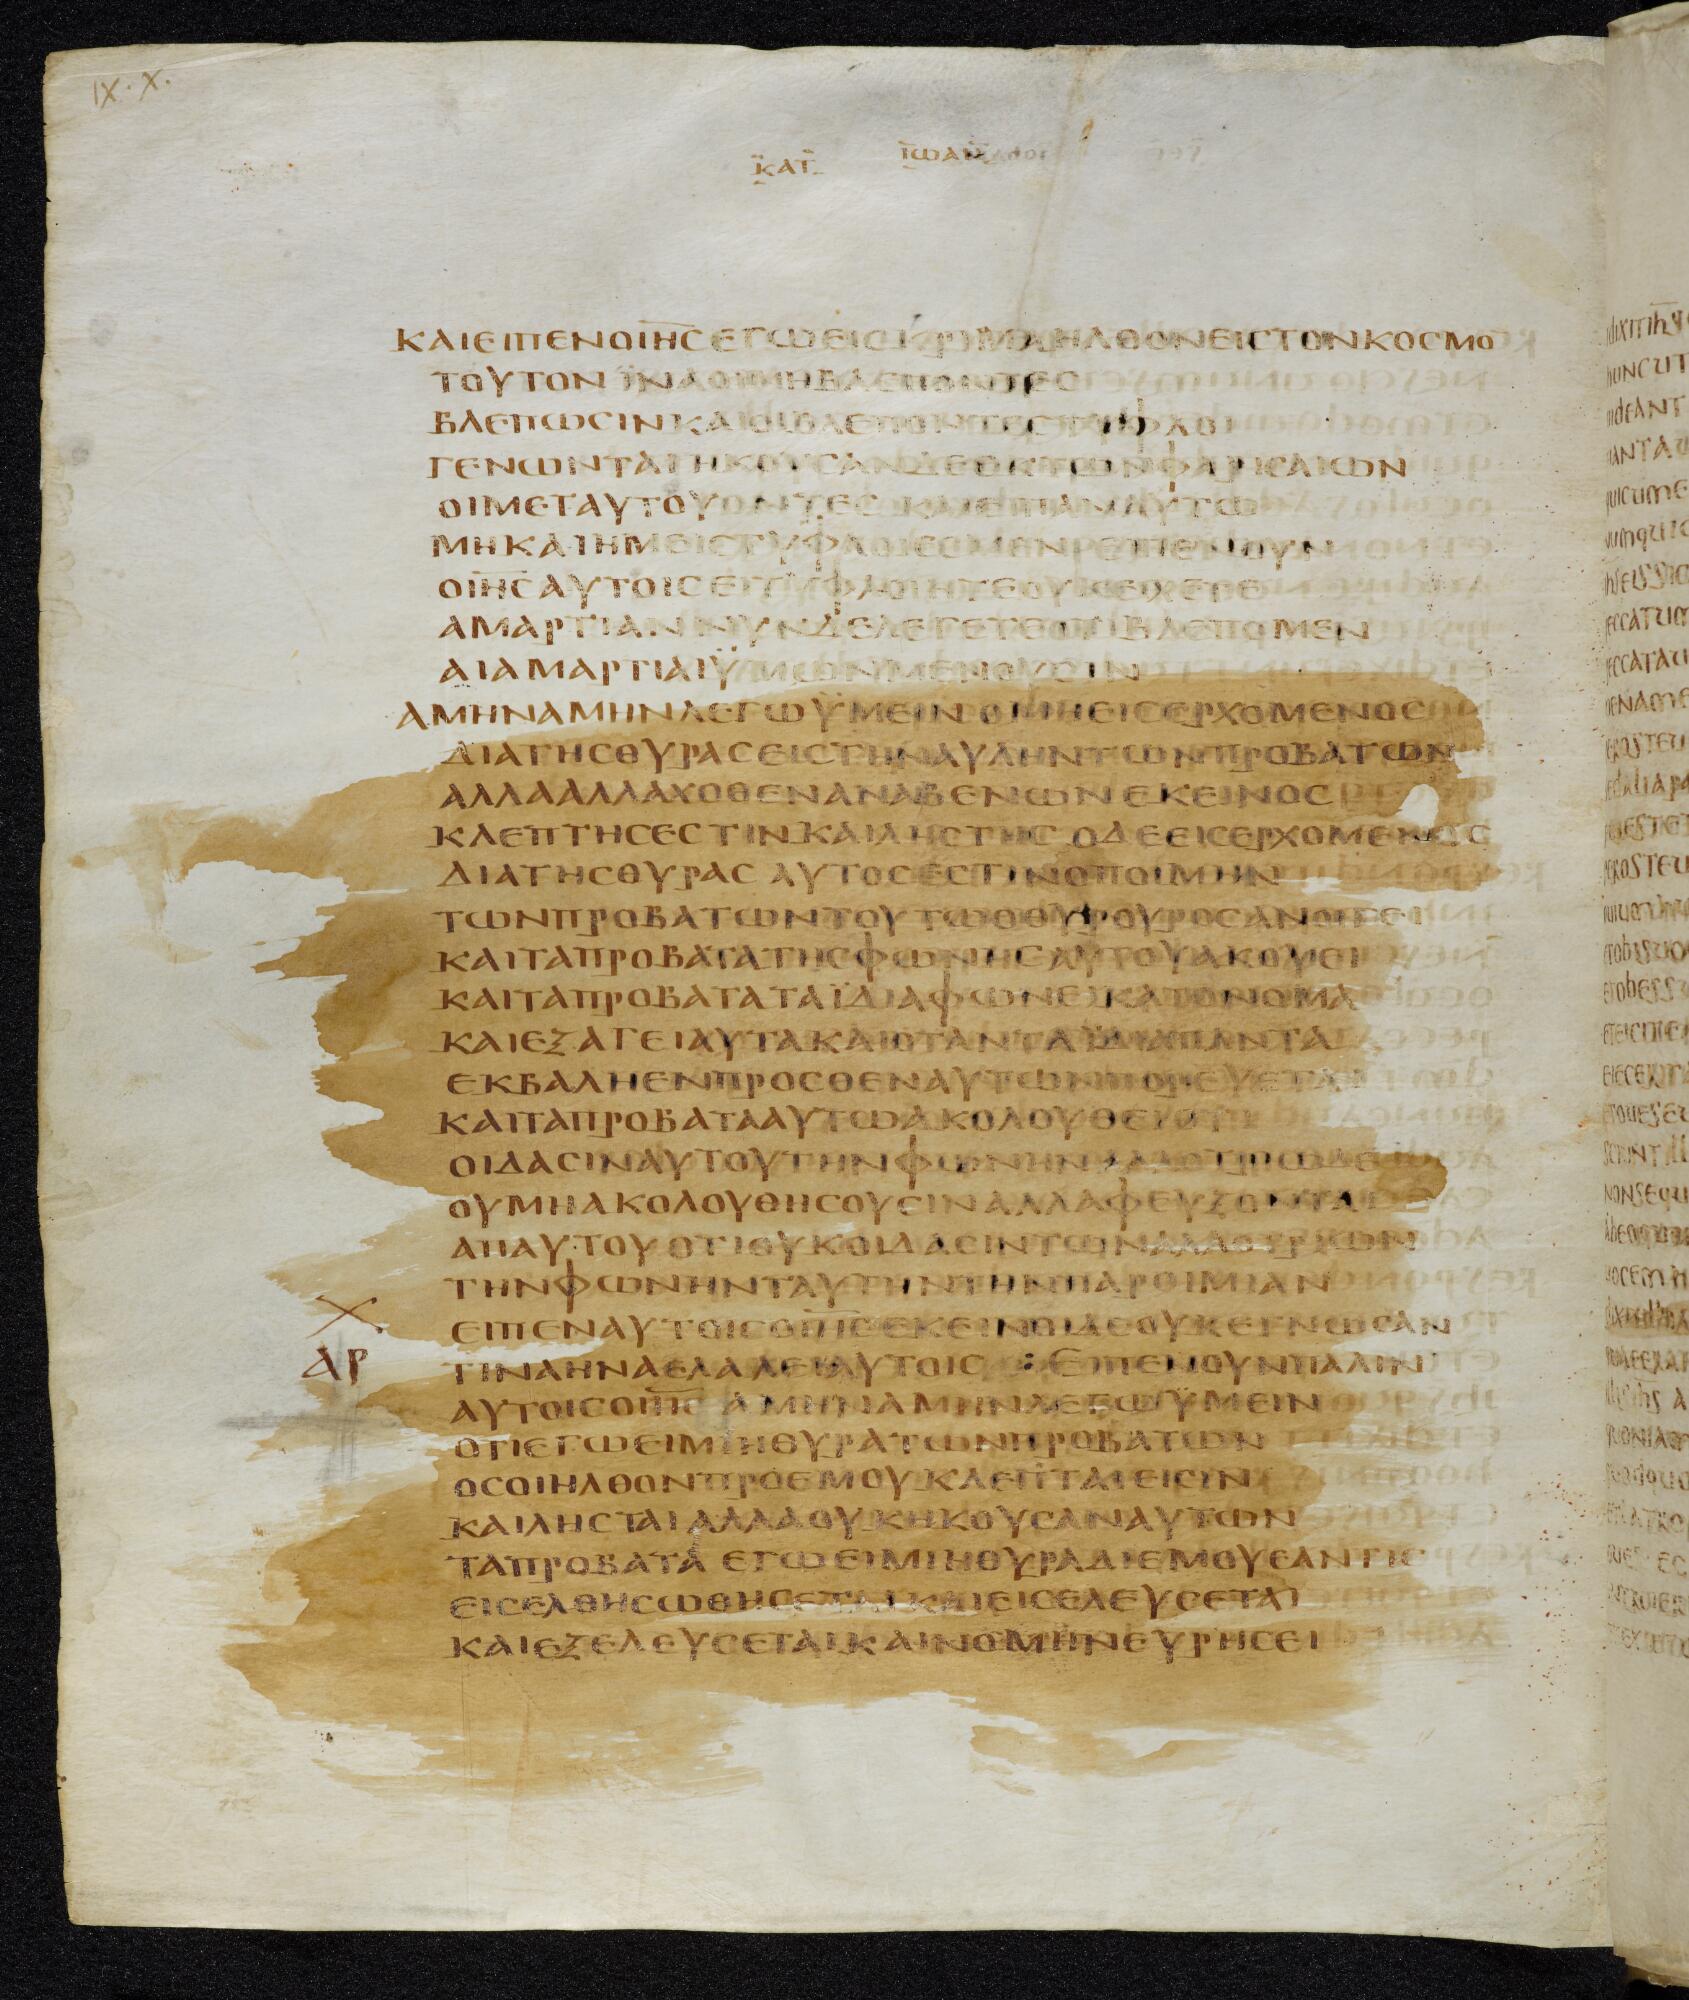 IX · X ·
ΚΑΤ ΙΩΑΝ
ΚΑΙΕΙΠΕΝΟΙΗϹΕΓΩΕΙϹΚΡΙΜΑΗΛΘΟΝΕΙϹΤΟΝΚΟϹΜΟ
ΤΟΥΤΟΝ ΪΝΑΟΙΜΗΒΛΕΠΟΝΤΕϹ
ΒΛΕΠΩϹΙΝΚΑΙΟΙΒΛΕΠΟΝΤΕϹΤΥΦΛΟΙ
ΓΕΝΩΝΤΑΙΗΚΟΥϹΑΝΔΕΕΚΤΩΝΦΑΡΙϹΑΙΩΝ
ΟΙΜΕΤΑΥΤΟΥΟΝΤΕϹ ΚΑΙΕΙΠΑΝΑΥΤΩ
ΜΗΚΑΙΗΜΕΙϹΤΥΦΛΟΙΕϹΜΕΝΕΙΠΕΝΟΥΝ
ΟΙΗϹΑΥΤΟΙϹΕΙΤΥΦΛΟΙΗΤΕΟΥΚΕΙΧΕΤΕ
ΑΜΑΡΤΙΑΝ ΝΥΝΔΕΛΕΓΕΤΕΟΤΙΒΛΕΠΟΜΕΝ
ΑΙΑΜΑΡΤΙΑΙΫΜΩΝΜΕΝΟΥϹΙΝ
ΑΜΗΝΑΜΗΝΛΕΓΩΫΜΕΙΝ ΟΜΗΕΙϹΕΡΧΟΜΕΝΟϹ
ΔΙΑΤΗϹΘΥΡΑϹΕΙϹΤΗΝΑΥΛΗΝΤΩΝΠΡΟΒΑΤΩΝ
ΑΛΛΑΑΛΛΑΧΟΘΕΝΑΝΑΒΕΝΩΝ ΕΚΕΙΝΟϹ
ΚΛΕΠΤΗϹΕϹΤΙΝΚΑΙΛΗϹΤΗϹ ΟΔΕΕΙϹΕΡΧΟΜΕΝΟϹ
ΔΙΑΤΗϹΘΥΡΑϹ ΑΥΤΟϹΕϹΤΙΝΟΠΟΙΜΗΝ
ΤΩΝΠΡΟΒΑΤΩΝΤΟΥΤΩΟΘΥΡΟΥΡΟϹΑΝΟΙΓΕΙ
ΚΑΙΤΑΠΡΟΒΑΤΑΤΗϹΦΩΝΗϹΑΥΤΟΥΑΚΟΥΕΙ
ΚΑΙΤΑΠΡΟΒΑΤΑΤΑΪΔΙΑΦΩΝΕΙΚΑΤΟΝΟΜΑ
ΚΑΙΕΞΑΓΕΙΑΥΤΑΚΑΙΟΤΑΝΤΑΪΔΙΑΠΑΝΤΑ
ΕΚΒΑΛΗΕΝΠΡΟϹΘΕΝΑΥΤΩΝΠΟΡΕΥΕΤΑΙ
ΚΑΙΤΑΠΡΟΒΑΤΑΑΥΤΩΑΚΟΛΟΥΘΕΙΟΤΙ
ΟΙΔΑϹΙΝΑΥΤΟΥΤΗΝΦΩΝΗΝΑΛΛΟΤΡΙΩΔΕ
ΟΥΜΗΑΚΟΛΟΥΘΗϹΟΥϹΙΝΑΛΛΑΦΕΥΞΟΝΤΑΙ
ΑΠΑΥΤΟΥΟΤΙΟΥΚΟΙΔΑϹΙΝΤΩΝΑΛΛΟΤΡΙΩΝ
ΤΗΝΦΩΝΗΝΤΑΥΤΗΝΤΗΝΠΑΡΟΙΜΙΑΝ
ΕΙΠΕΝΑΥΤΟΙϹΟΙΗϹΕΚΕΙΝΟΙΔΕΟΥΚΕΓΝΩϹΑΝ
ΑΡ ΤΙΝΑΗΝΑΕΛΑΛΕΙΑΥΤΟΙϹ : ΕΙΠΕΝΟΥΝΠΑΛΙΝ
ΑΥΤΟΙϹΟΙΗϹ ΑΜΗΝΑΜΗΝΛΕΓΩΫΜΕΙΝ
ΟΤΙΕΓΩΕΙΜΙΗΘΥΡΑΤΩΝΠΡΟΒΑΤΩΝ
ΟϹΟΙΗΛΘΟΝΠΡΟΕΜΟΥΚΛΕΠΤΑΙΕΙϹΙΝ
ΚΑΙΛΗϹΤΑΙΑΛΛΑΟΥΚΗΚΟΥϹΑΝΑΥΤΩΝ
ΤΑΠΡΟΒΑΤΑ ΕΓΩΕΙΜΙΗΘΥΡΑΔΙΕΜΟΥΕΑΝΤΙϹ
ΕΙϹΕΛΘΗϹΩΘΗϹΕΤΑΙΚΑΙΕΙϹΕΛΕΥϹΕΤΑΙ
ΚΑΙΕΞΕΛΕΥϹΕΤΑΙΚΑΙΝΟΜΗΝΕΥΡΗϹΕΙ